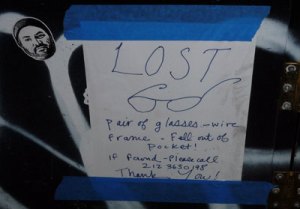 LOST
pair of glasses - wire
frame - Fell out of
pocket!
If Found - Please call
212 3650195
Thank You!